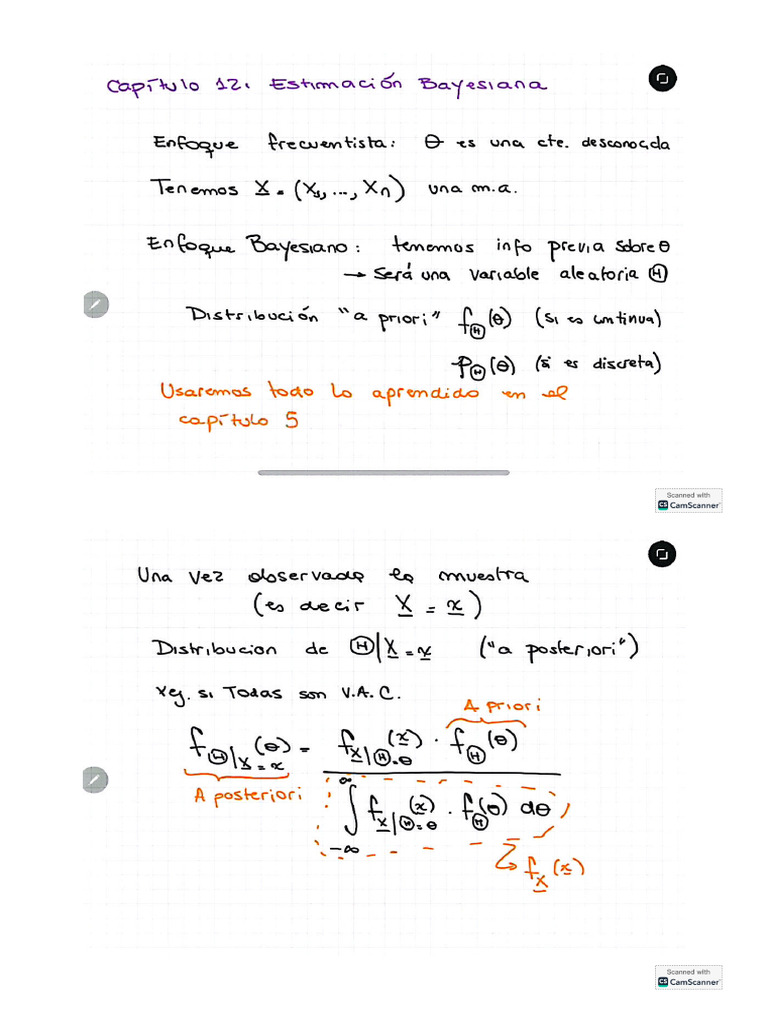 Capítulo 12. Estimación Bayesiana
Enfoque frecuentista: θ es una cte. desconocida
Tenemos X = (X₁, ..., Xn) una m.a.
Enfoque Bayesiano: tenemos info previa sobre θ
→ Será una variable aleatoria Ⓗ
Distribución "a priori" fⒽ(θ) (si es continua)
pⒽ(θ) (si es discreta)
Usaremos todo lo aprendido en el
capítulo 5
Scanned with
CS CamScanner
Una vez observada la muestra
(es decir X = x)
Distribucion de Ⓗ|X = x ("a posteriori")
si Todas son V.A.C.
A priori
fⒽ|X=x(θ) = fX|Ⓗ=θ(x) · fⒽ(θ)
A posteriori
∫ −∞ ∞ fX|Ⓗ=θ(x) · fⒽ(θ) dθ
fX(x)
Scanned with
CS CamScanner